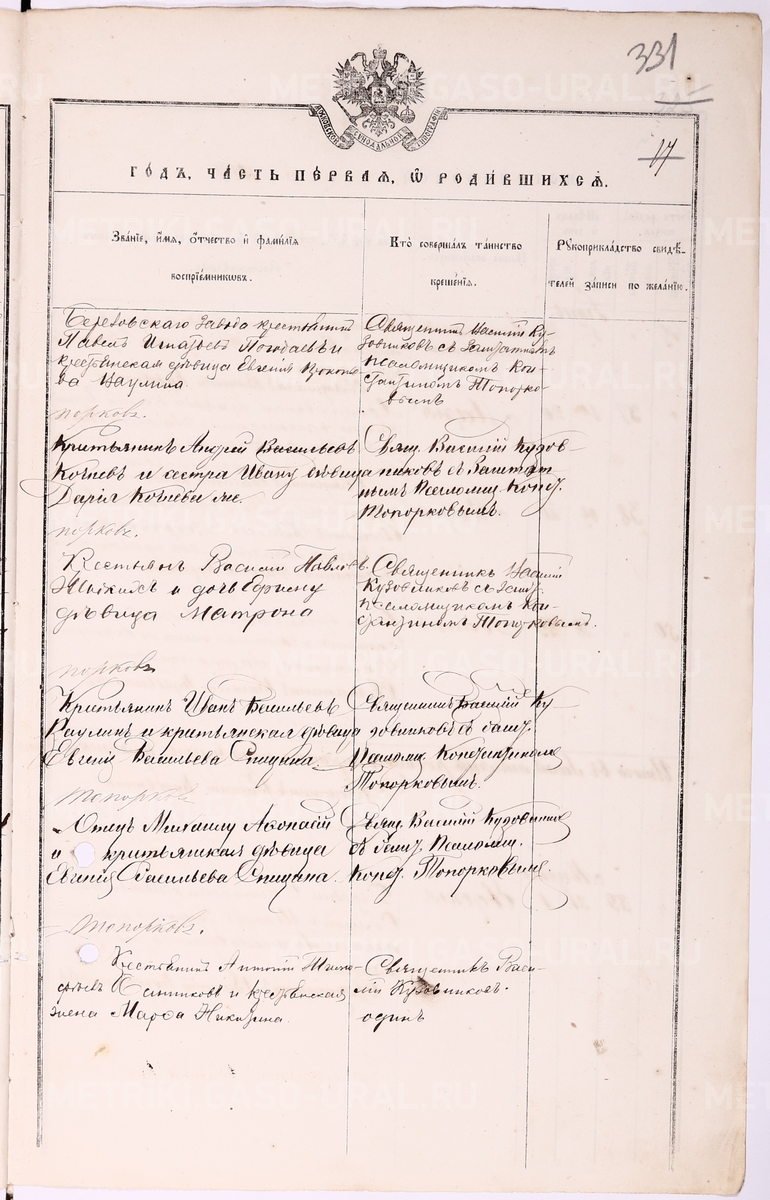 331
17
МОСКОВСКОЙ СѴНОДАЛЬНОЙ ТИПОГРАФІИ
ГОДЪ, ЧАСТЬ ПЕРВАЯ, Ѡ РОДИВШИХСЯ.
Званіе, имя, отчество и фамилія воспріемниковъ.
Кто совершалъ таинство крещенія.
Рукоприкладство свидѣтелей записи по желанію.
Березовскаго завода крестьянинъ
Павелъ Игнатьевъ и
крестьянская дѣвица Евгенія
Священникъ Василій Ку-
зовниковъ съ Заштатнымъ
псаломщикомъ Кон-
стантиномъ Топорко-
вымъ
порковъ.
Крестьянинъ Андрей Васильевъ
Кочневъ и сестра Ивану дѣвица
Дарія Кочнева же.
Свящ. Василій Кузов-
никовъ съ Заштат-
нымъ Псаломщ. Конст.
Топорковымъ.
порковъ.
Крестьян Василій Павловъ
и дочь его
дѣвица Матрона
Священникъ Василій
Кузовниковъ съ Зашт.
псаломщикомъ Кон-
стантиномъ Топорковымъ.
порковъ
Крестьянинъ Иванъ Васильевъ
Паулинъ и крестьянская дѣвица
Евгенія Васильева Спицина
Священникъ Василій Ку
зовниковъ съ Зашт.
Псаломщ. Константиномъ
Топорковымъ.
Топорковъ
Отецъ Михаилу Афонасій
и крестьянская дѣвица
Евгенія Васильева Спицина.
Свящ. Василій Кузовниковъ
съ Зашт. Псаломщ.
Конст. Топорковымъ.
Топорковъ.
Крестьянинъ Антоній Тимо-
феевъ и крестьянская
жена Марфа Никитина.
Священникъ Васи-
лій Кузовниковъ.
одинъ
METRIKI.GASO-URAL.RU